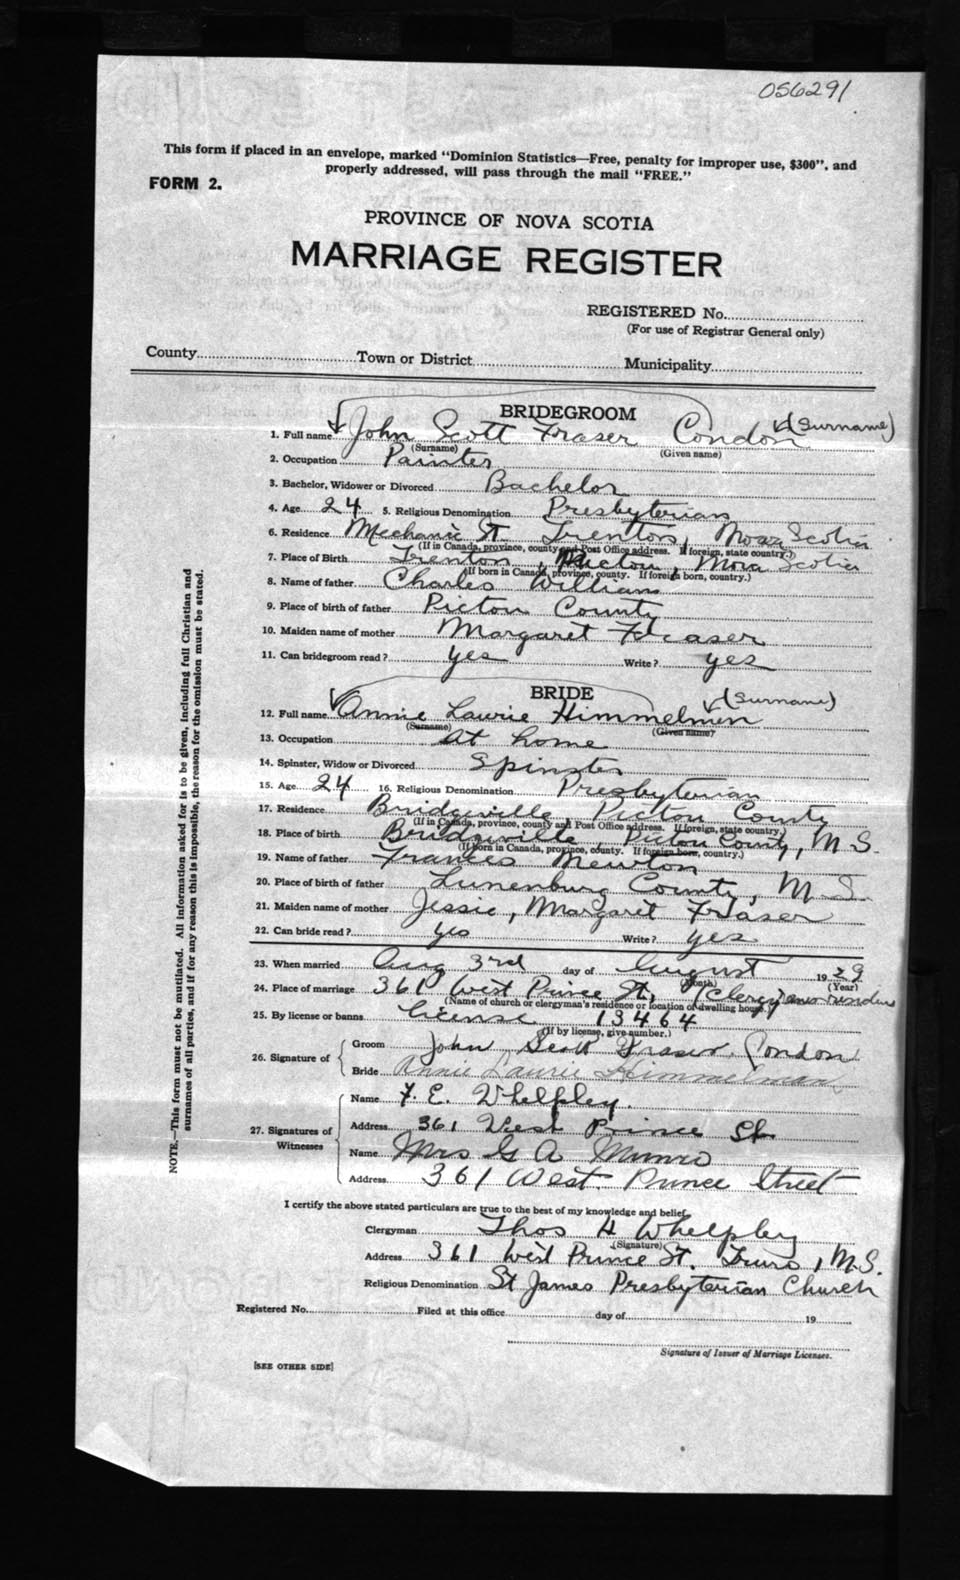 056291
This form if placed in an envelope, marked "Dominion Statistics—Free, penalty for improper use, $300", and
properly addressed, will pass through the mail "FREE."
FORM 2.
PROVINCE OF NOVA SCOTIA
MARRIAGE REGISTER
REGISTERED No.
(For use of Registrar General only)
County Town or District Municipality
BRIDEGROOM
1. Full name John Scott Fraser Condon (Surname)
(Surname) (Given name)
2. Occupation Painter
3. Bachelor, Widower or Divorced Bachelor
4. Age 24 5. Religious Denomination Presbyterian
6. Residence Mechanic St. Trenton, Nova Scotia
(If in Canada, province, county and Post Office address. If foreign, state country.)
7. Place of Birth Trenton, Pictou, Nova Scotia
(If born in Canada, province, county. If foreign born, country.)
8. Name of father Charles William
9. Place of birth of father Pictou County
10. Maiden name of mother Margaret Fraser
11. Can bridegroom read? yes Write? yes
BRIDE
12. Full name Annie Laurie Himmelmen (Surname)
(Surname) (Given name)
13. Occupation At home
14. Spinster, Widow or Divorced Spinster
15. Age 24 16. Religious Denomination Presbyterian
17. Residence Bridgeville, Pictou County
(If in Canada, province, county and Post Office address. If foreign, state country.)
18. Place of birth Bridgeville, Pictou County, N.S.
(If born in Canada, province, county. If foreign born, country.)
19. Name of father Frances Newton
20. Place of birth of father Lunenburg County, N.S.
21. Maiden name of mother Jessie, Margaret Fraser
22. Can bride read? yes Write? yes
23. When married Aug 3rd day of August 1929
(Month) (Year)
24. Place of marriage 361 West Prince St, (Clergyman residence
(Name of church or clergyman's residence or location of dwelling house.)
25. By license or banns license 13464
(If by license, give number.)
26. Signature of
Groom John Scott Fraser Condon
Bride Annie Laurie Himmelman
27. Signatures of
Witnesses
Name F. E. Whelpley.
Address 361 West Prince St
Name Mrs G A Munro
Address 361 West Prince Street
I certify the above stated particulars are true to the best of my knowledge and belief.
Clergyman Thos H Whelpley
(Signature)
Address 361 West Prince St. Truro, N.S.
Religious Denomination St James Presbyterian Church
Registered No. Filed at this office day of 19
Signature of Issuer of Marriage Licenses.
[SEE OTHER SIDE]
NOTE.—This form must not be mutilated. All information asked for is to be given, including full Christian and
surnames of all parties, and if for any reason this is impossible, the reason for the omission must be stated.